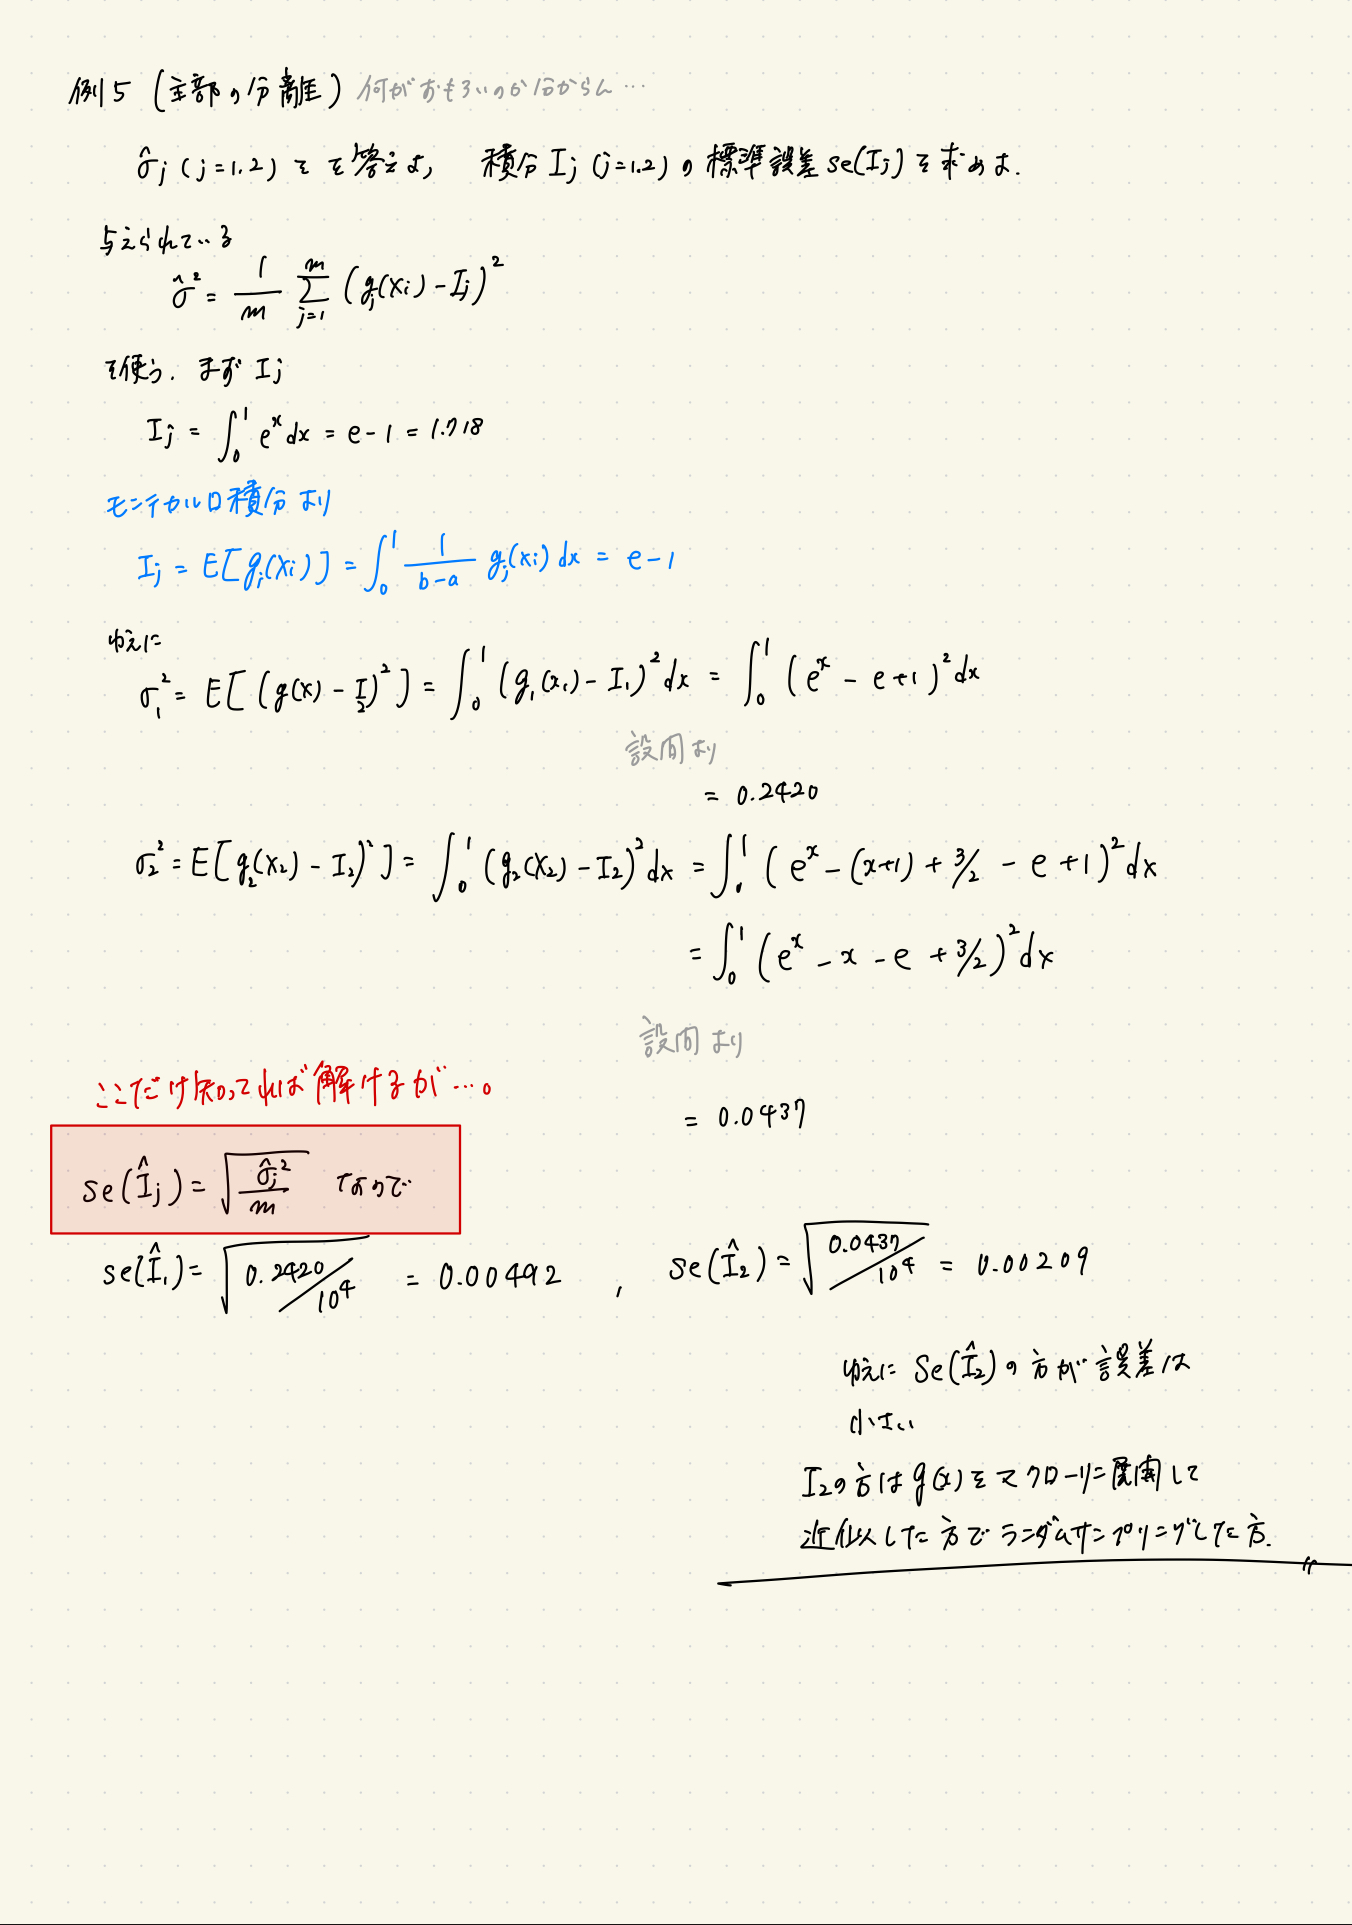 例5 (主部の分離) 何がおもろいのか分からん…
σ̂j (j=1.2) を を答えよ, 積分 Ij (j=1.2) の 標準誤差 se(Ij) を求めよ.
与えられている
σ̂² = 1/m Σ_{j=1}^{m} (gj(Xi) - Ij)²
を使う. まず Ij
Ij = ∫₀¹ e^x dx = e - 1 = 1.718
モンテカルロ積分より
Ij = E[gj(Xi)] = ∫₀¹ 1/(b-a) gj(xi) dx = e - 1
ゆえに
σ₁² = E[(g(x) - I₂)²] = ∫₀¹ (g₁(x₁) - I₁)² dx = ∫₀¹ (e^x - e + 1)² dx
設問より
= 0.2420
σ₂² = E[g₂(X₂) - I₂)²] = ∫₀¹ (g₂(X₂) - I₂)² dx = ∫₀¹ (e^x - (x+1) + 3/2 - e + 1)² dx
= ∫₀¹ (e^x - x - e + 3/2)² dx
設問より
ここだけ知ってれば解けるが…。
= 0.0437
se(Îj) = √(σ̂j²/m) なので
se(Î₁) = √(0.2420/10⁴) = 0.00492 , se(Î₂) = √(0.0437/10⁴) = 0.00209
ゆえに se(Î₂) の方が誤差は
小さい
I₂の方は g(x) をマクローリン展開して
近似した方でランダムサンプリングした方.
〃